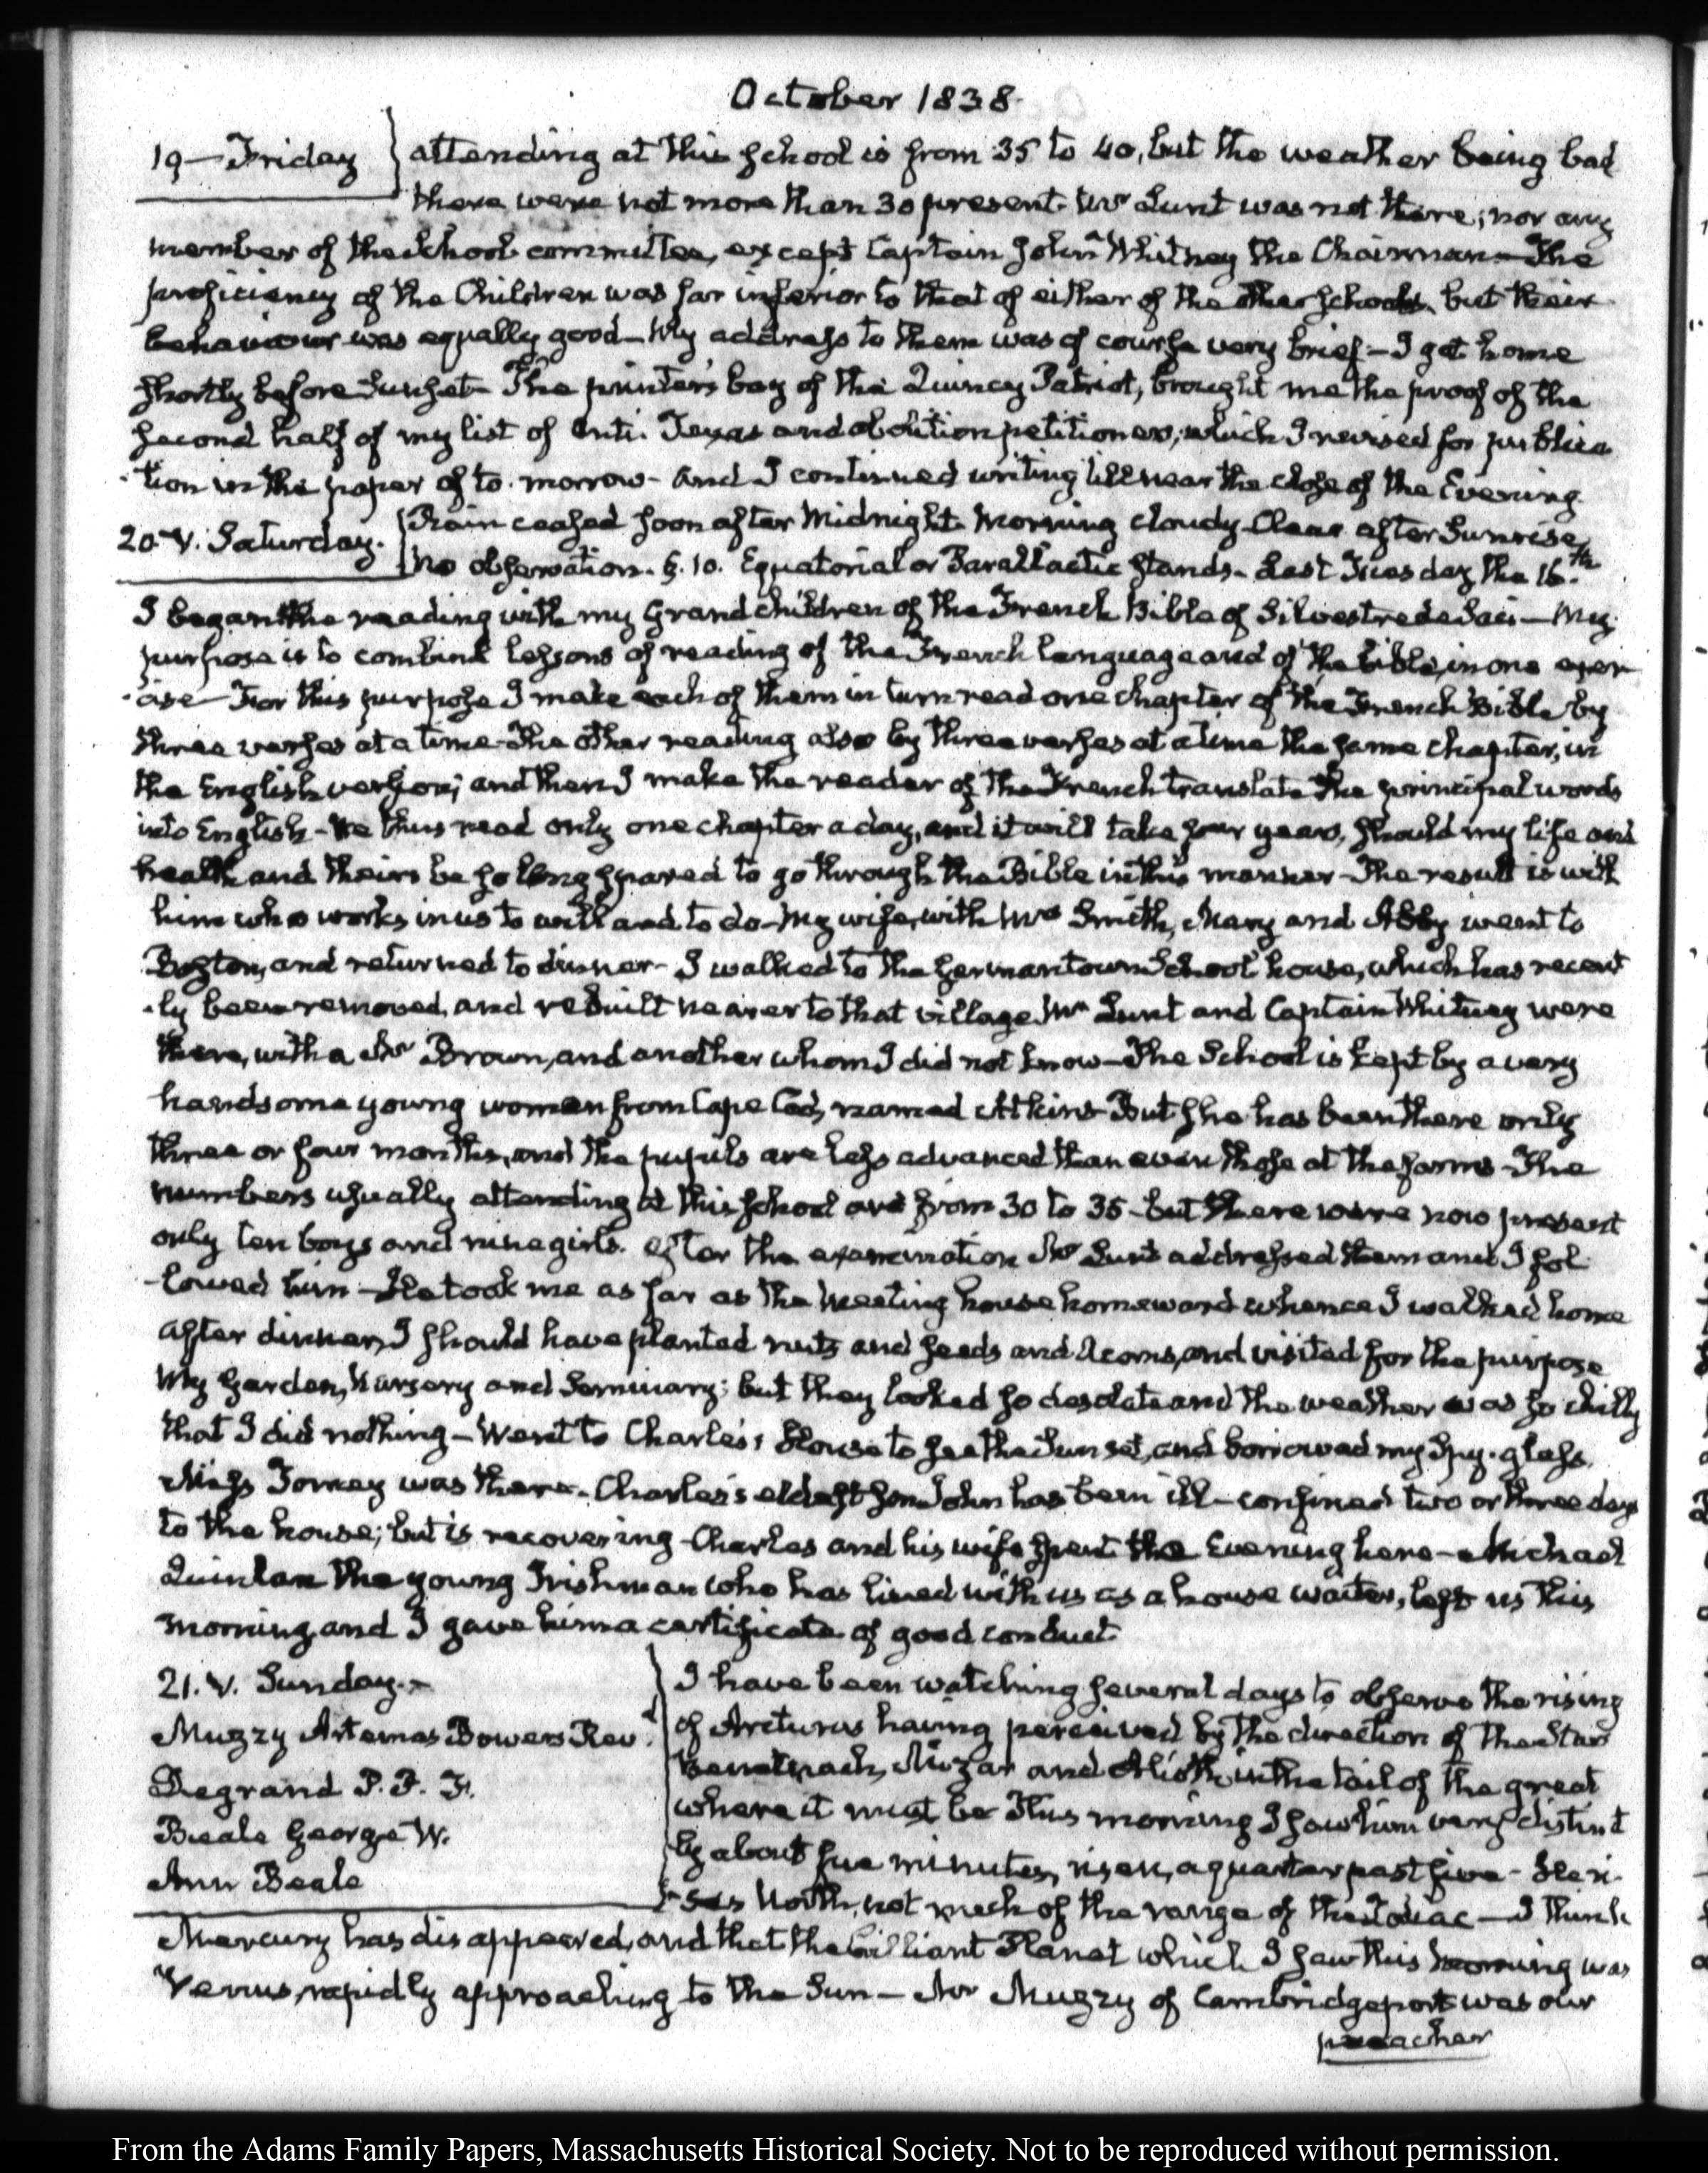 October 1838.
19 — Friday
attending at this school is from 35 to 40, but the weather being bad
there were not more than 30 present. Mr Lunt was not there; nor any
member of the School committee, except Captain John Whitney the Chairman — The
proficiency of the Children was far inferior to that of either of the other schools, but their
behaviour was equally good — My address to them was of course very brief — I got home
shortly before Sunset — The printer's boy of the Quincy Patriot, brought me the proof of the
second half of my list of Anti-Texas and abolition petitioners, which I revised for publica
tion in the paper of to-morrow — and I continued writing till near the close of the Evening.
20. V. Saturday.
Rain ceased soon after Midnight. Morning cloudy — Clear after Sunrise,
no observation. §. 10. Equatorial or Parallactic Stands — Last Tuesday the 16.th
I began the reading with my Grandchildren of the French Bible of Silvestre de Saci — My
purpose is to combine lessons of reading of the French language and of the bible, in one exer
-cise — For this purpose I make each of them in turn read one chapter of the French Bible by
three verses at a time — The other reading also by three verses at a time the same chapter, in
the English version; and then I make the reader of the French translate the principal words
into English — We thus read only one chapter a day, and it will take four years, should my life and
health and theirs be so long spared to go through the Bible in this manner — The result is with
him who works in us to will and to do — My wife, with Mrs Smith, Mary and Abby went to
Boston, and returned to dinner — I walked to the Germantown School house, which has recent
-ly been removed, and rebuilt nearer to that village. Mr Lunt and Captain Whitney were
there, with a Mr Brown, and another whom I did not know — The School is kept by a very
handsome young woman from Cape Cod, named Atkins — But she has been there only
three or four months, and the pupils are less advanced than even those at the farms — The
numbers usually attending at this school are from 30 to 35 — but there were now present
only ten boys and nine girls. After the examination Mr Lunt addressed them and I fol
-lowed him — He took me as far as the Meeting house homeward whence I walked home
After dinner, I should have planted nuts and seeds and Acorns, and visited for the purpose
My Garden, Nursery and Seminary; but they looked so desolate and the weather was so chilly
that I did nothing — Went to Charles's House to see the Sunset, and borrowed my Spy-glass.
Miss Torrey was there. Charles's eldest son John has been ill — confined two or three days
to the house; but is recovering — Charles and his wife spent the Evening here — Michael
Quinlan the young Irishman who has lived with us as a house waiter, left us this
morning, and I gave him a certificate of good conduct
21. V. Sunday. —
Muzzy Artemas Bowers Revd
Degrand P. P. F.
Beale George W.
Ann Beale
I have been watching several days to observe the rising
of Arcturus having perceived by the direction of the Stars
Benetnach, Mizar and Alioth in the tail of the great
where it must be This morning I saw him very distinct
ly about five minutes, risen, a quarter past five — He ri-
-ses North, not much of the range of the Zodiac — I think
Mercury has disappeared, and that the brilliant Planet which I saw this morning was
Venus, rapidly approaching to the Sun — Mr Muzzy of Cambridgeport was our
preacher
From the Adams Family Papers, Massachusetts Historical Society. Not to be reproduced without permission.